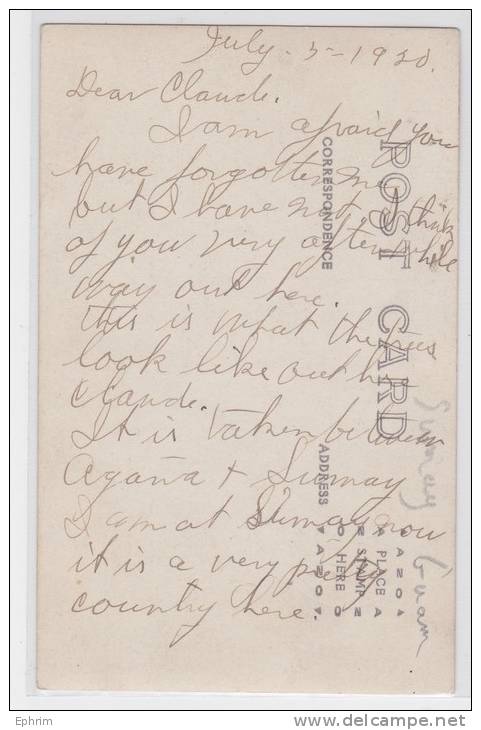 July. 5 - 1920.
Dear Claude.
I am afraid you
have forgotten me
but I have not, I think
of you very often while
way out here.
this is what the trees
look like out here
Claude.
It is taken between
Agaña + Sumay
I am at Sumay now
it is a very pretty
country here.
POST CARD
CORRESPONDENCE
ADDRESS
AZO
PLACE
STAMP
HERE
AZO
Sumay Guam
Ephrim
delcampe.net